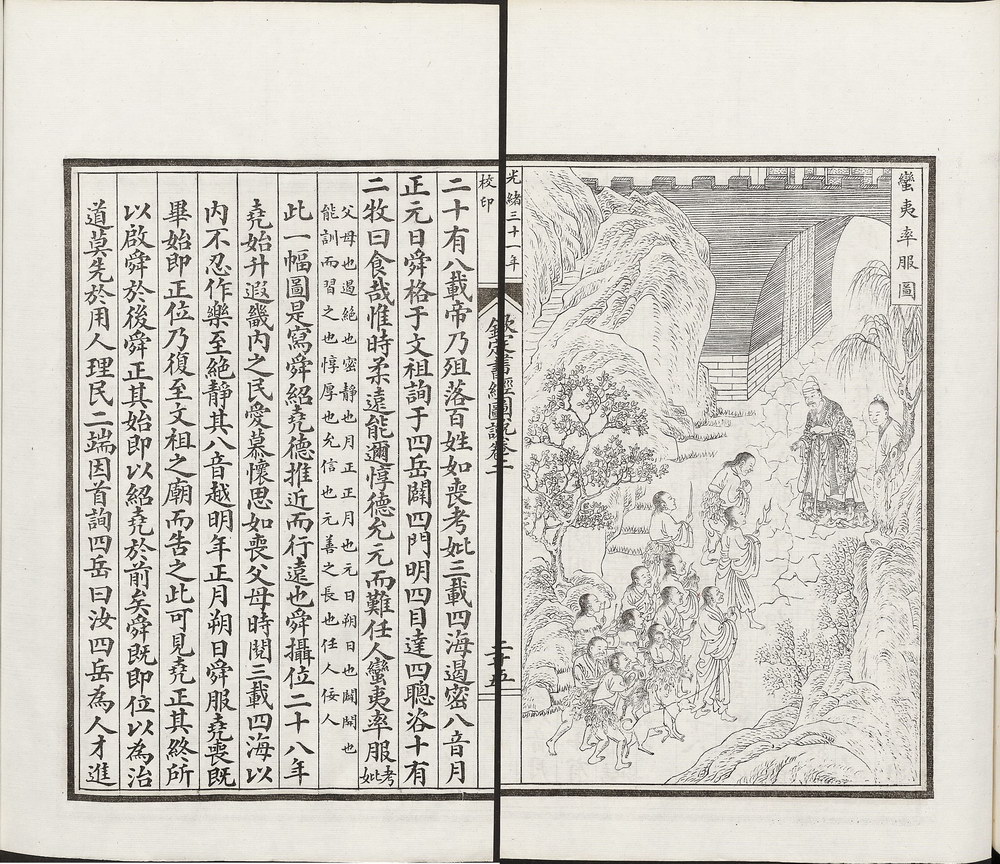 蠻夷率服圖
光緒三十一年
校印
欽定書經圖說卷二
二十五
二十有八載帝乃殂落百姓如喪考妣三載四海遏密八音月
正元日舜格于文祖詢于四岳闢四門明四目達四聰咨十有
二牧曰食哉惟時柔遠能邇惇德允元而難任人蠻夷率服考
妣
父母也遏絕也密靜也月正正月也元日朔日也闢開也
能訓而習之也惇厚也允信也元善之長也任人佞人
此一幅圖是寫舜紹堯德推近而行遠也舜攝位二十八年
堯始升遐畿內之民愛慕懷思如喪父母時閱三載四海以
內不忍作樂至絕靜其八音越明年正月朔日舜服堯喪既
畢始即正位乃復至文祖之廟而告之此可見堯正其終所
以啟舜於後舜正其始即以紹堯於前矣舜既即位以為治
道莫先於用人理民二端因首詢四岳曰汝四岳為人才進